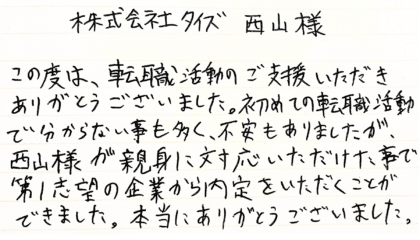 株式会社タイズ 西山様
この度は、転職活動のご支援いただき
ありがとうございました。初めての転職活動
で分からない事も多く、不安もありましたが、
西山様が親身に対応いただけた事で
第1志望の企業から内定をいただくことが
できました。本当にありがとうございました。